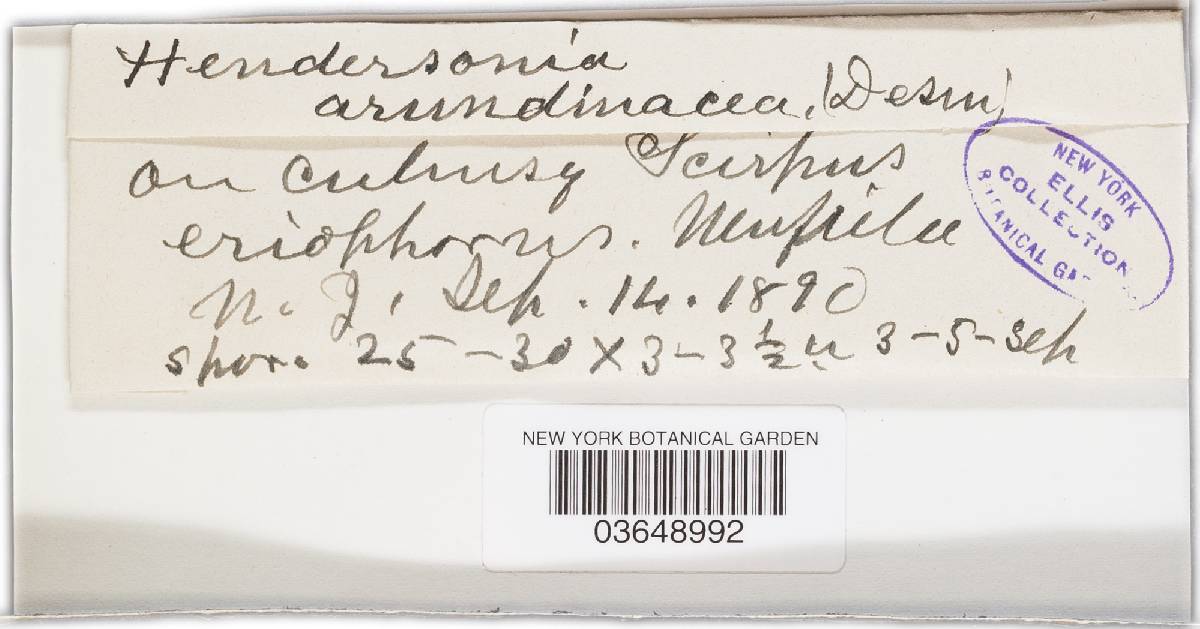 Hendersonia
arundinacea, (Desm)
on culmsy Scirpus
eriophorus. Newfield
N. J, Sep. 14. 1890
spor. 25-30 X 3-3 ½ u 3-5-Sep
NEW YORK
ELLIS
COLLECTION
BOTANICAL GA
NEW YORK BOTANICAL GARDEN
03648992